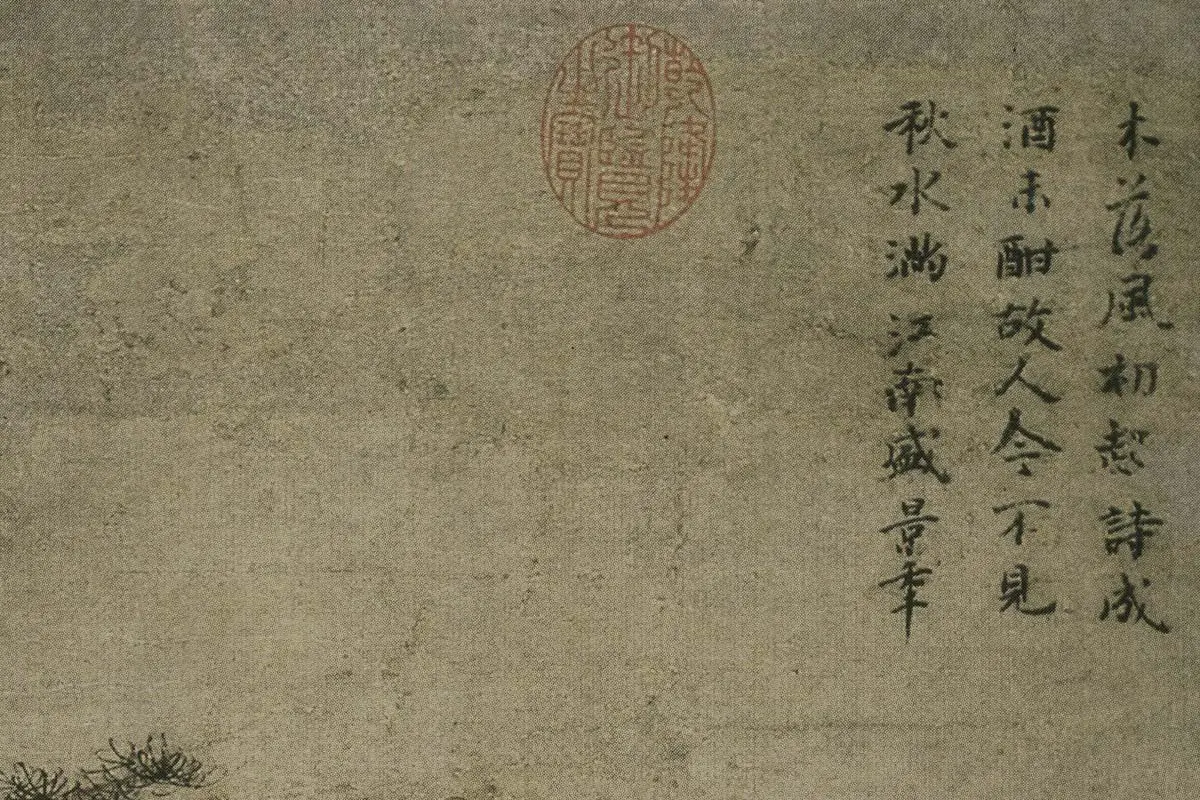 木落風初起詩成
酒未酣故人今不見
秋水滿江南盛景年
乾隆御覽之寶